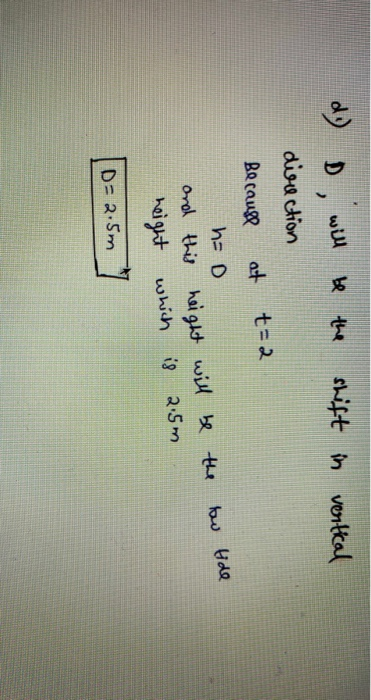 d.) D, will be the shift in vertical
direction
Because at t=2
h= D
and this height will be the low tide
height which is 2.5m
D= 2.5m